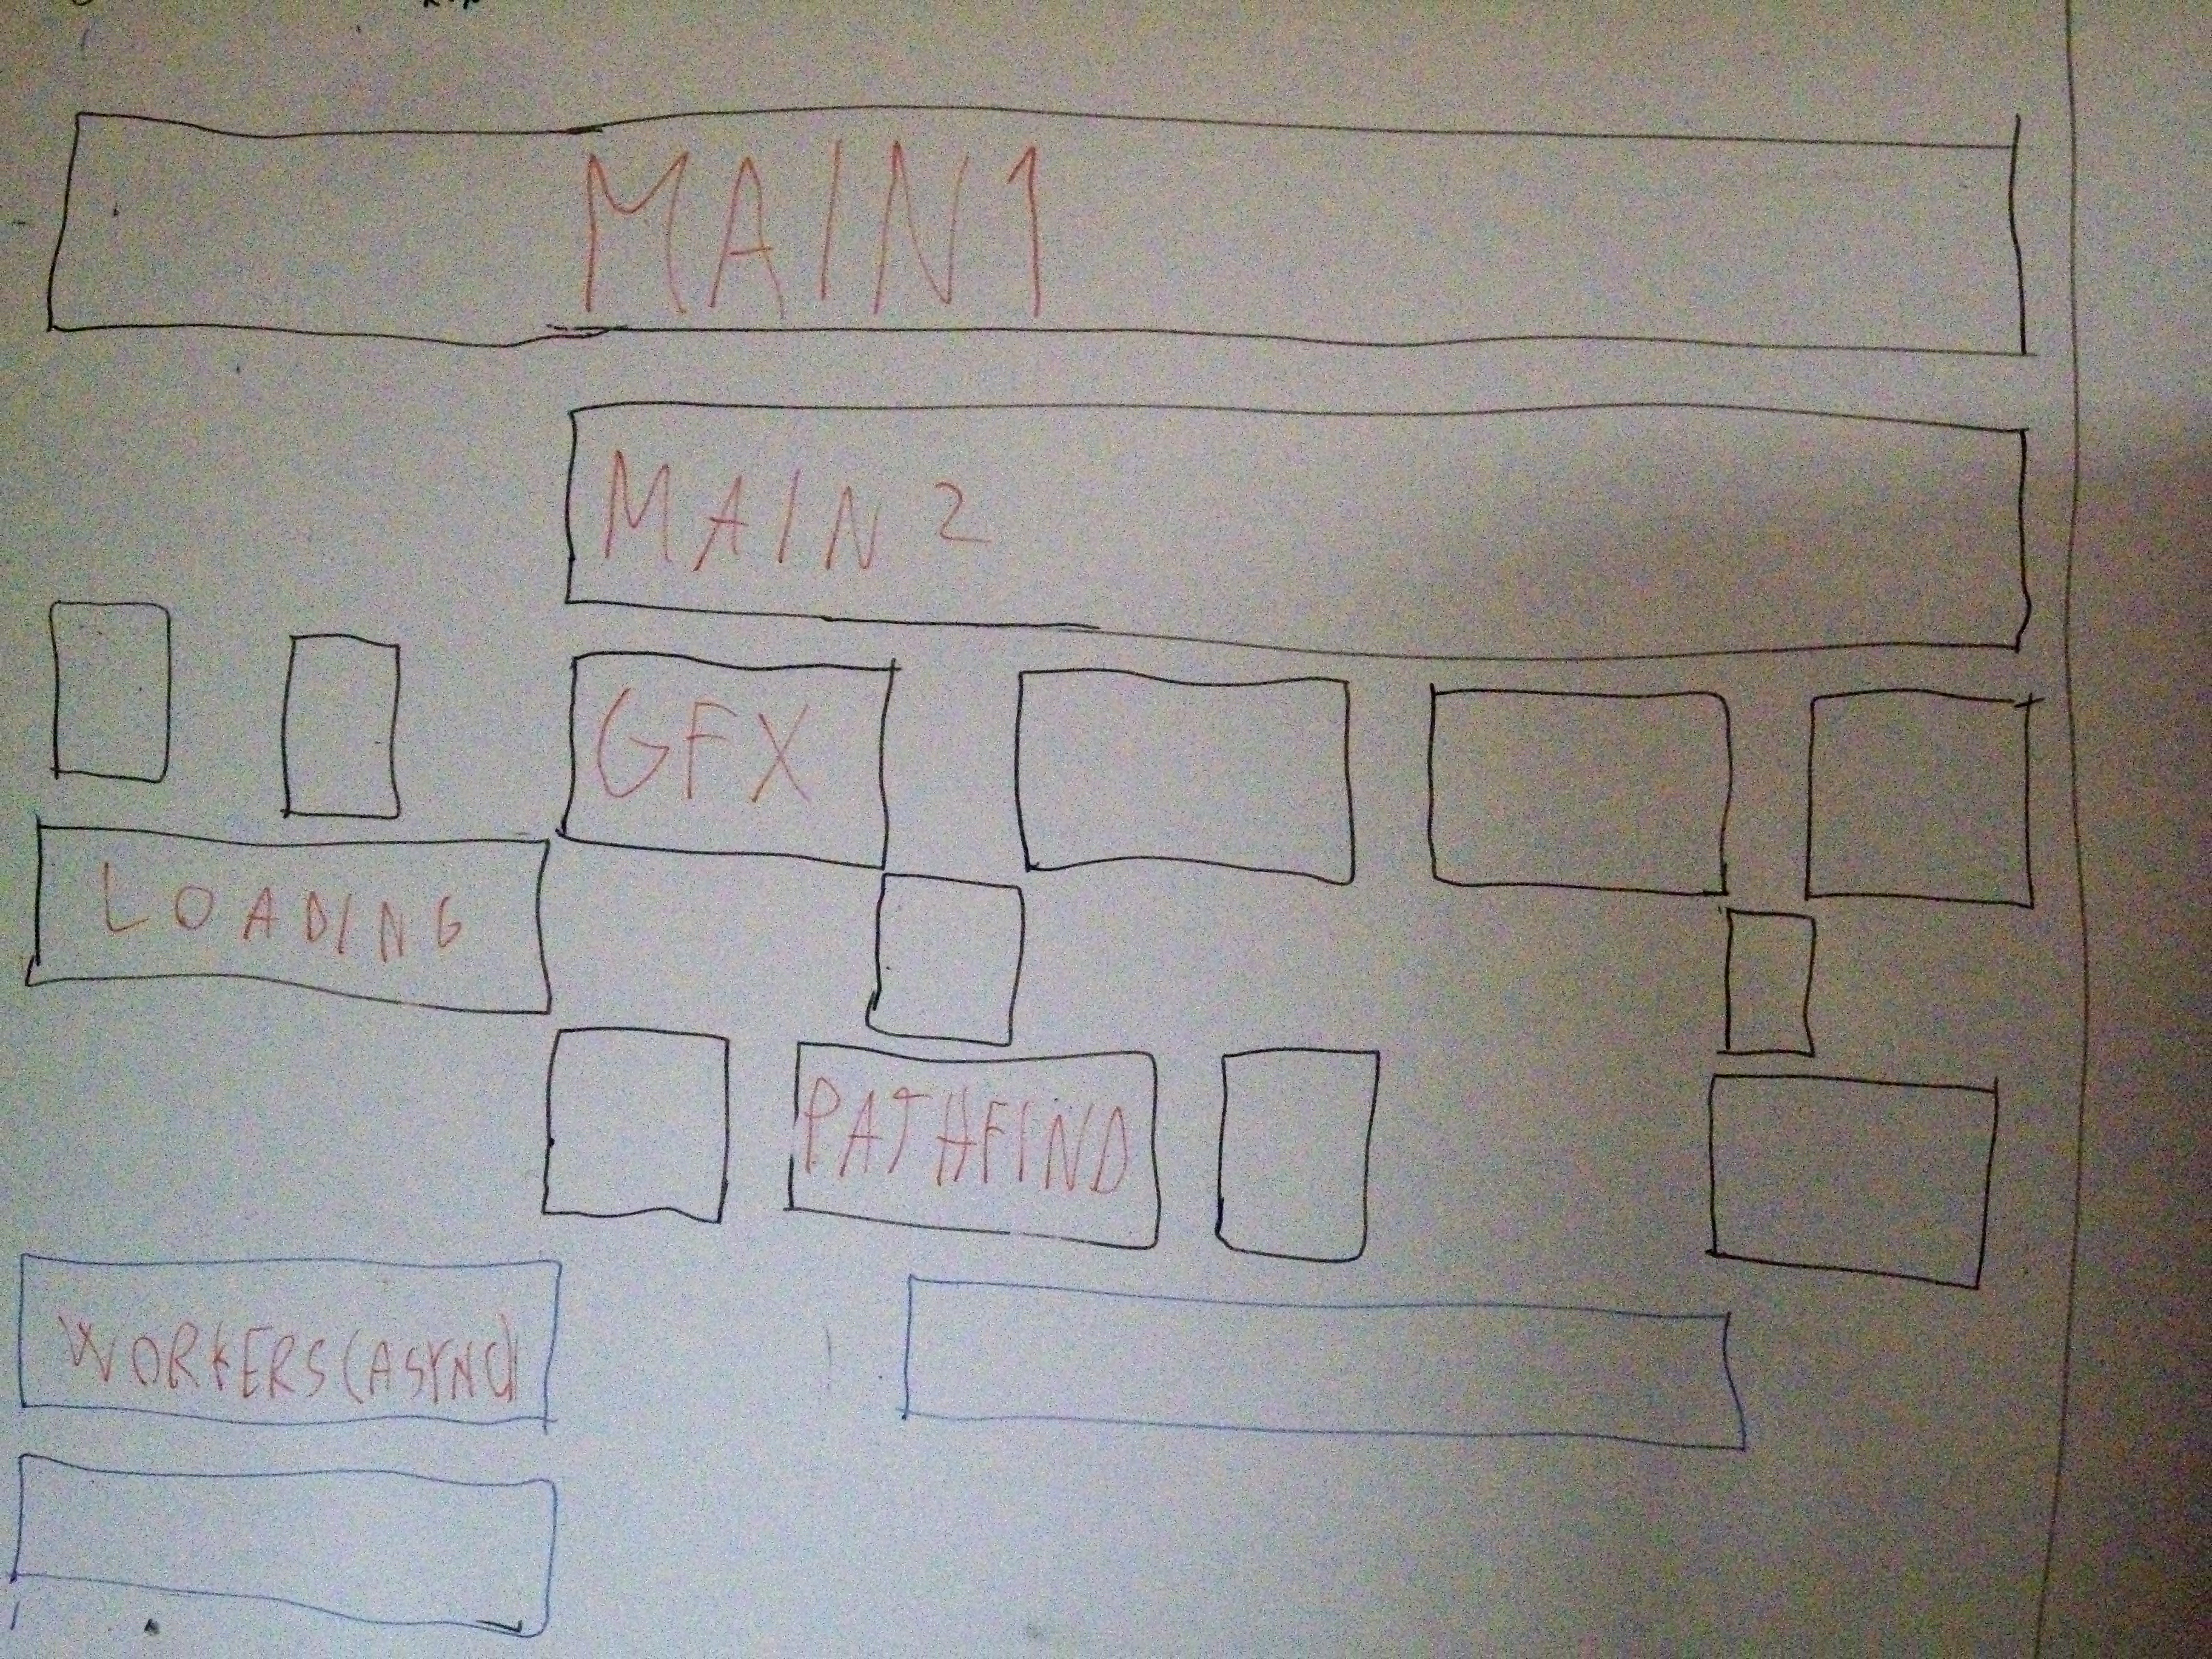 MAIN1
MAIN 2
GFX
LOADING
PATHFIND
WORKERS(ASYNC)